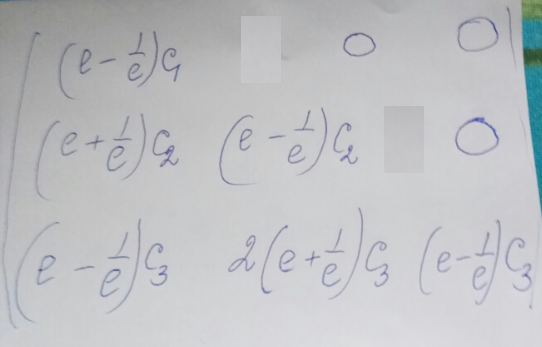 (e - 1/e)C₁ 0 0
(e + 1/e)C₂ (e - 1/e)C₂ 0
(e - 1/e)C₃ 2(e + 1/e)C₃ (e - 1/e)C₃